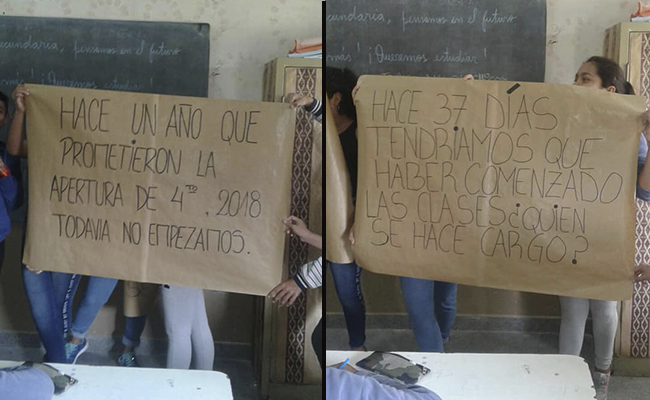 ecundaria, pensamos en el futuro
más! ¡Queremos estudiar!
HACE UN AÑO QUE
PROMETIERON LA
APERTURA DE 4TO. 2018
TODAVIA NO EMPEZAMOS.
ecundaria, pensamos en el futuro
más! ¡Queremos estudiar!
HACE 37 DÍAS
TENDRÍAMOS QUE
HABER COMENZADO
LAS CLASES ¿QUIEN
SE HACE CARGO?